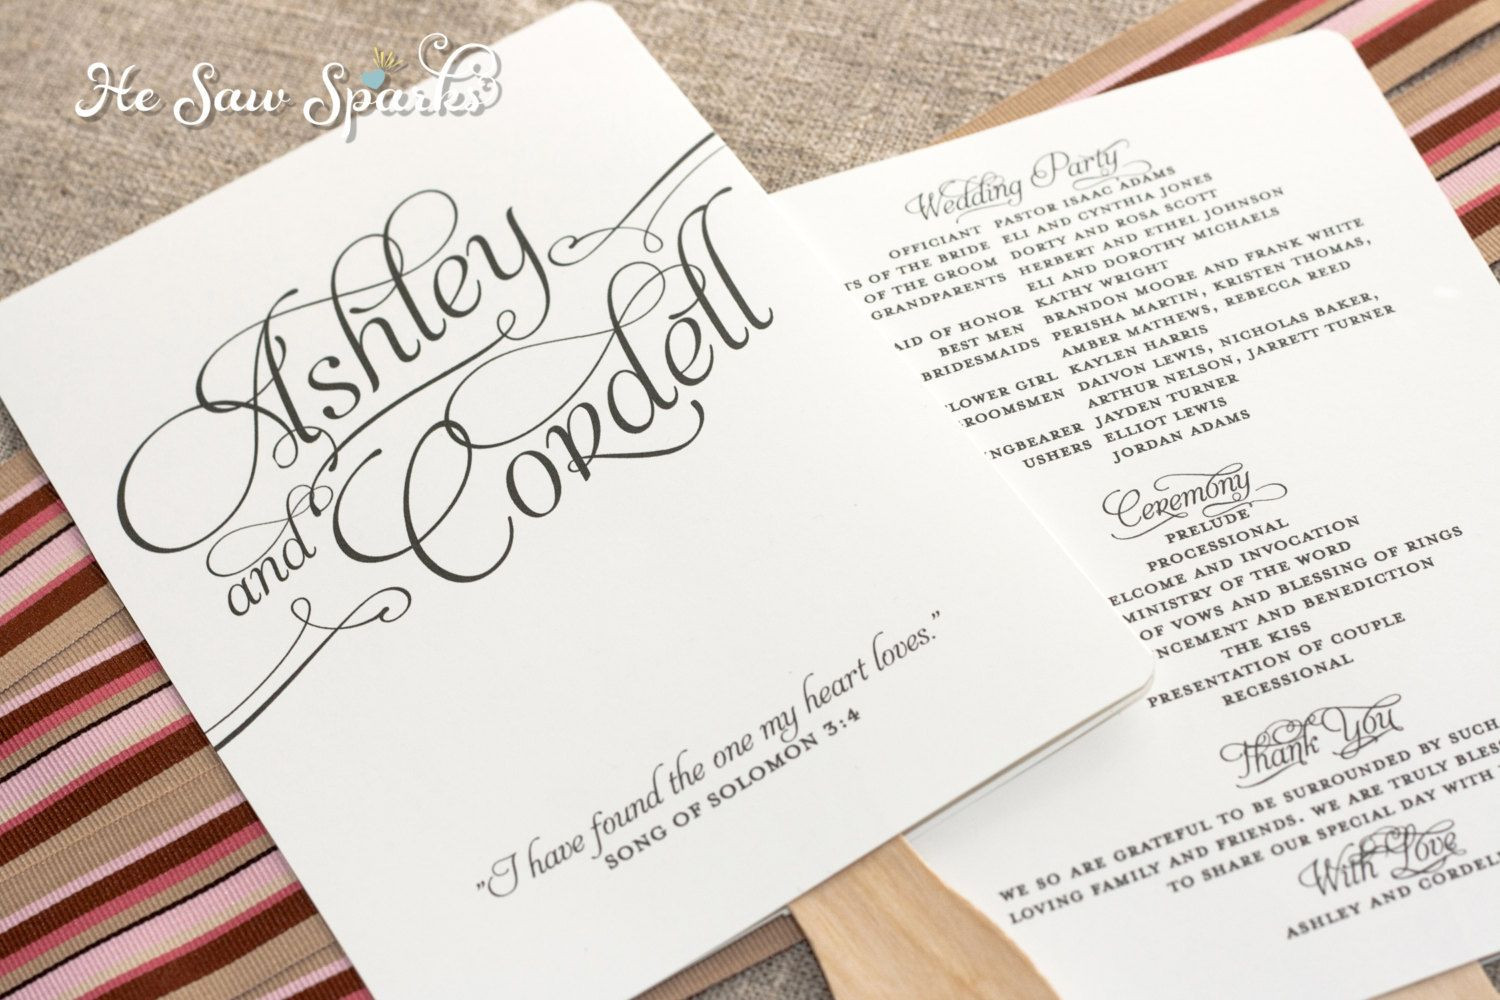 He Saw Sparks
Ashley
and Cordell
"I have found the one my heart loves."
SONG OF SOLOMON 3:4
Wedding Party
OFFICIANT PASTOR ISAAC ADAMS
OF THE BRIDE ELI AND CYNTHIA JONES
OF THE GROOM DORTY AND ROSA SCOTT
GRANDPARENTS HERBERT AND ETHEL JOHNSON
ELI AND DOROTHY MICHAELS
OF HONOR KATHY WRIGHT
BEST MEN BRANDON MOORE AND FRANK WHITE
BRIDESMAIDS PERISHA MARTIN, KRISTEN THOMAS,
AMBER MATHEWS, REBECCA REED
GIRL KAYLEN HARRIS
DAIVON LEWIS, NICHOLAS BAKER,
ARTHUR NELSON, JARRETT TURNER
JAYDEN TURNER
USHERS ELLIOT LEWIS
JORDAN ADAMS
Ceremony
PRELUDE
PROCESSIONAL
AND INVOCATION
MINISTRY OF THE WORD
OF VOWS AND BLESSING OF RINGS
AND BENEDICTION
THE KISS
PRESENTATION OF COUPLE
RECESSIONAL
Thank You
WE SO ARE GRATEFUL TO BE SURROUNDED BY SUCH
LOVING FAMILY AND FRIENDS. WE ARE TRULY
TO SHARE OUR SPECIAL DAY WITH
With Love
ASHLEY AND CORDELL